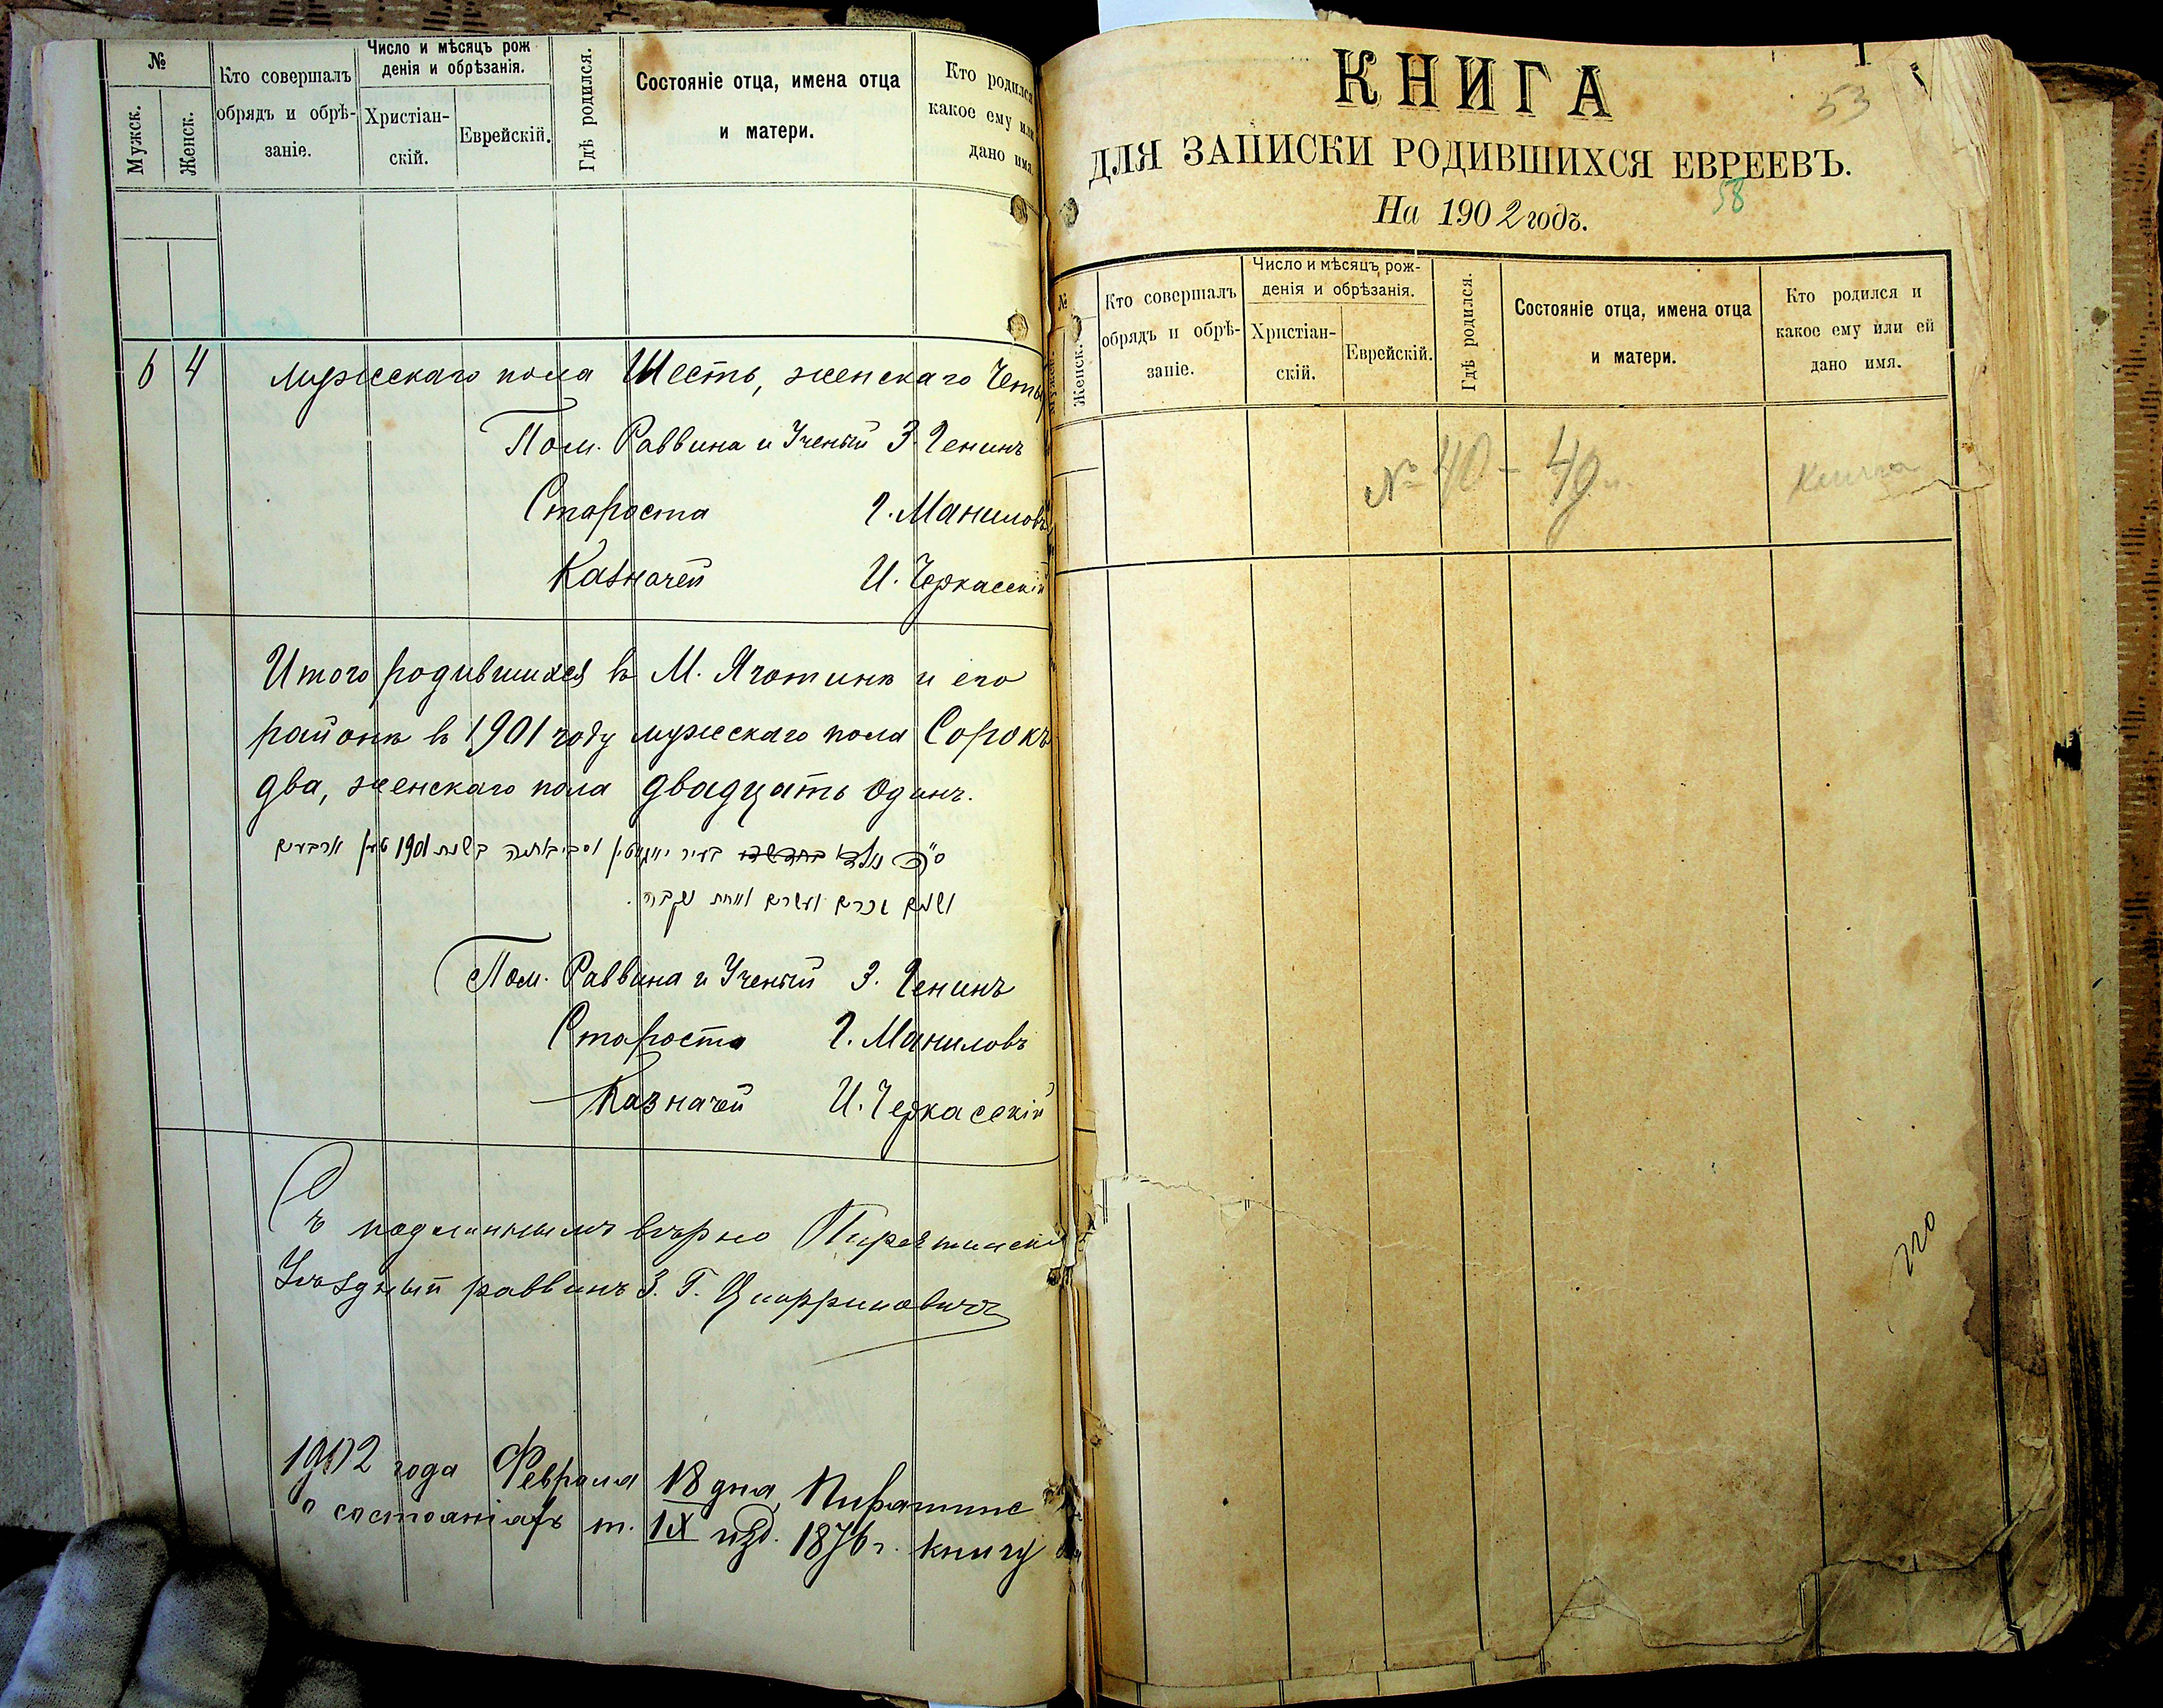 №
Мужск.
Женск.
Кто совершалъ
обрядъ и обрѣ-
заніе.
Число и мѣсяцъ рож
денія и обрѣзанія.
Христіан-
скій.
Еврейскій.
Гдѣ родился.
Состояніе отца, имена отца
и матери.
Кто родился
какое ему или
дано имя.
6 4 мужескаго пола Шесть, женскаго Четы
Пом. Раввина и Ученый З. Генинъ
Староста Г. Маниловъ
Казначей И. Черкасскій
Итого родившихся въ М. Яготинѣ и его
районѣ въ 1901 году мужескаго пола Сорокъ
два, женскаго пола двадцать одинъ.
בשנת 1901 ארבעים
ושנים זכרים ועשרים ואחת נקבה.
Пом. Раввина и Ученый З. Генинъ
Староста Г. Маниловъ
Казначей И. Черкасскій
Съ подлиннымъ вѣрно Пирятинскій
Уѣздный раввинъ З. Г.
1902 года Февраля 18 дня, Пирятинс
о состояніяхъ т. IX изд. 1876 г. книгу
КНИГА
53
ДЛЯ ЗАПИСКИ РОДИВШИХСЯ ЕВРЕЕВЪ.
58
На 1902 годъ.
№
Мужск.
Женск.
Кто совершалъ
обрядъ и обрѣ-
заніе.
Число и мѣсяцъ рож-
денія и обрѣзанія.
Христіан-
скій.
Еврейскій.
Гдѣ родился.
Состояніе отца, имена отца
и матери.
Кто родился и
какое ему или ей
дано имя.
№ 40 - 49 Книга